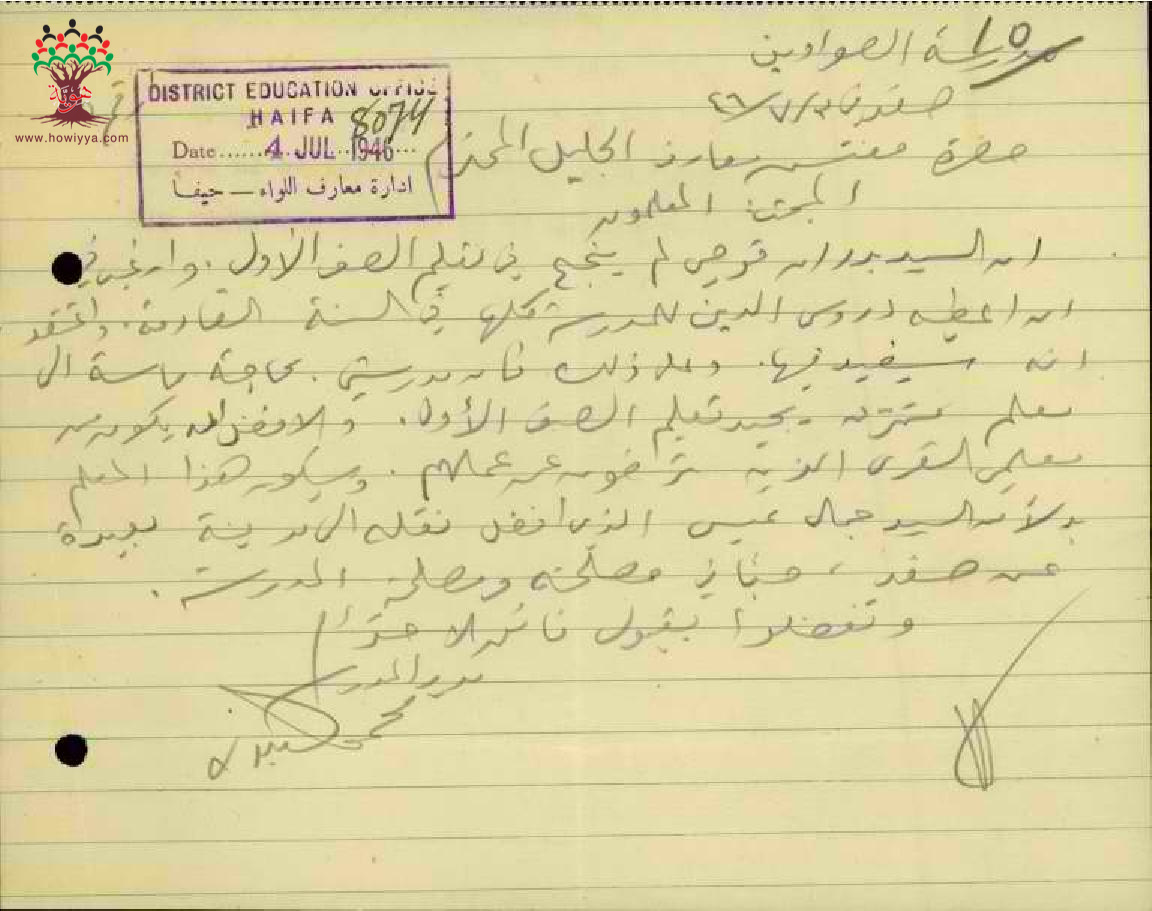 مدرسة الصوادين
صفد في ٢/٧/٤٦
DISTRICT EDUCATION OFFICE
HAIFA
8074
Date ...... 4 JUL 1946 ...
ادارة معارف اللواء — حيفا
www.howiyya.com
حضرة مفتش معارف الجليل المحترم
المبحث: المعلمون
ان السيد بدران قوصي لم ينجح في تعليم الصف الأول. وارغب في
ان اعطيه دروس الدين للمدرسة كلها في السنة القادمة. واعتقد
انه سيفيد فيها. وعلى ذلك فان مدرستي بحاجة ماسة الى
معلم متمرن يجيد تعليم الصف الأول. والافضل ان يكون من
معلمي القرى الذين ترضون عن عملهم. وسيكون هذا المعلم
بدلا من السيد جمال عيسى الذي افضل نقله الى مدينة بعيدة
عن صفد، حبا في مصلحته ومصلحة المدرسة.
وتفضلوا بقبول فائق الاحترام
مدير المدرسة
محمود